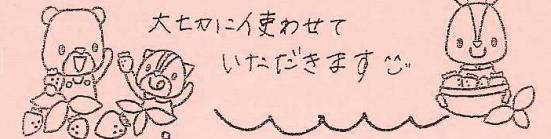 大切に使わせて
いただきます